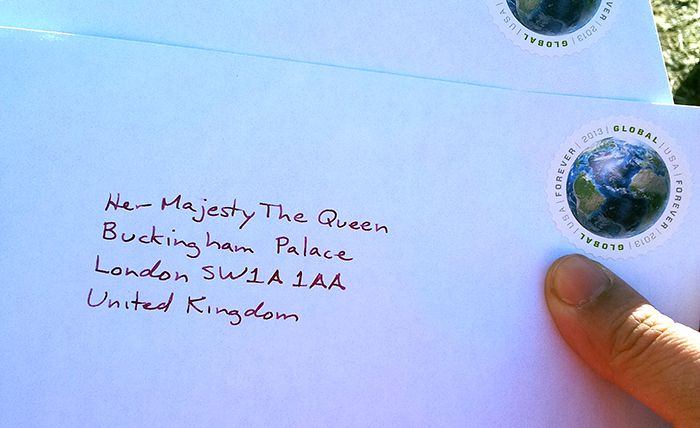 GLOBAL | 2013 | FOREVER
Her Majesty The Queen
Buckingham Palace
London SW1A 1AA
United Kingdom
FOREVER | 2013 | GLOBAL | USA | FOREVER | 2013 | GLOBAL | USA |